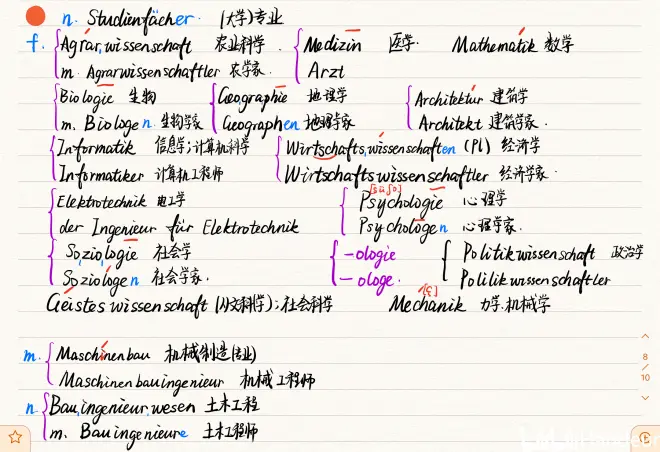 n. Studienfächer. (大学)专业
f. Agrar,wissenschaft 农业科学. Medizin 医学. Mathematik 数学
m. Agrarwissenschaftler 农学家. Arzt
Biologie 生物 Geographie 地理学 Architektur 建筑学
m. Biologen 生物学家 Geographen 地理学家. Architekt 建筑学家.
Informatik 信息学;计算机科学 Wirtschafts,wissenschaften (Pl) 经济学
Informatiker 计算机工程师 Wirtschaftswissenschaftler 经济学家.
Elektrotechnik 电工学 Psychologie 心理学
der Ingenieur für Elektrotechnik Psychologen 心理学家.
Soziologie 社会学 -ologie Politikwissenschaft 政治学
Soziologen 社会学家. -ologe. Polilikwissenschaftler
Geisteswissenschaft (人文科学);社会科学 Mechanik 力学.机械学
[ç]
m. Maschinenbau 机械制造(专业)
Maschinenbauingenieur 机械工程师
n. Bau,ingenieur,wesen 土木工程
m. Bauingenieure 土木工程师
8
/
10